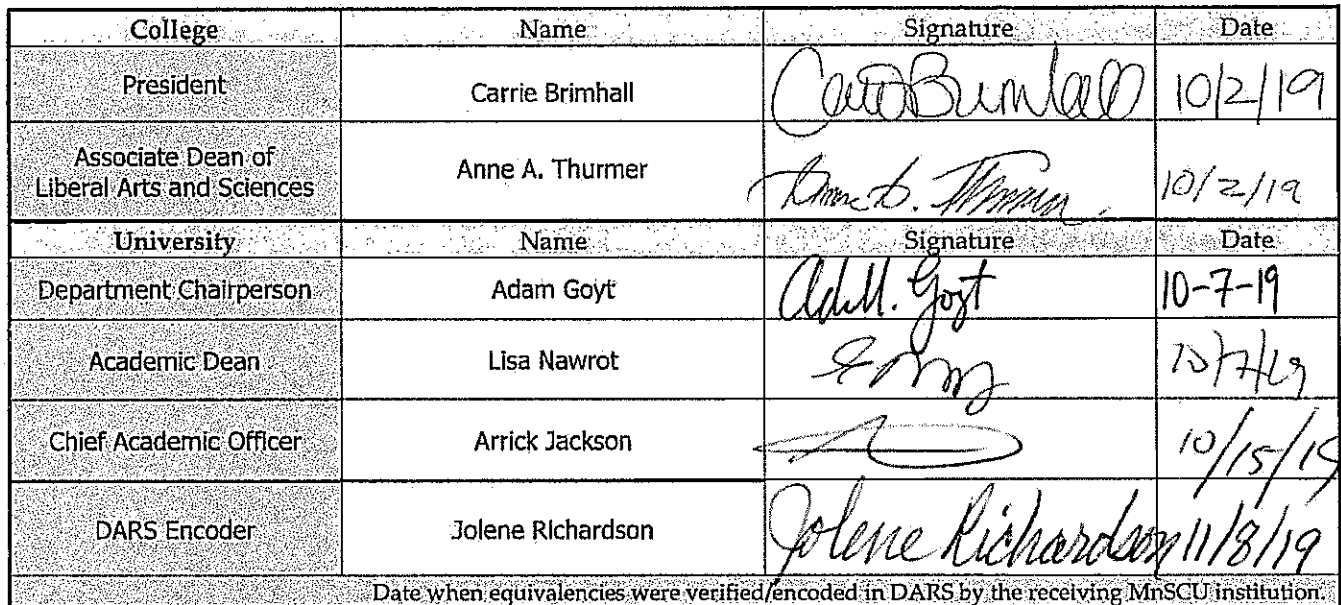 College Name Signature Date
President Carrie Brimhall Carrie Brimhall 10/2/19
Associate Dean of
Liberal Arts and Sciences Anne A. Thurmer 10/2/19
University Name Signature Date
Department Chairperson Adam Goyt Adam. Goyt 10-7-19
Academic Dean Lisa Nawrot 10/7/19
Chief Academic Officer Arrick Jackson 10/15/19
DARS Encoder Jolene Richardson Jolene Richardson 11/8/19
Date when equivalencies were verified/encoded in DARS by the receiving MnSCU institution.